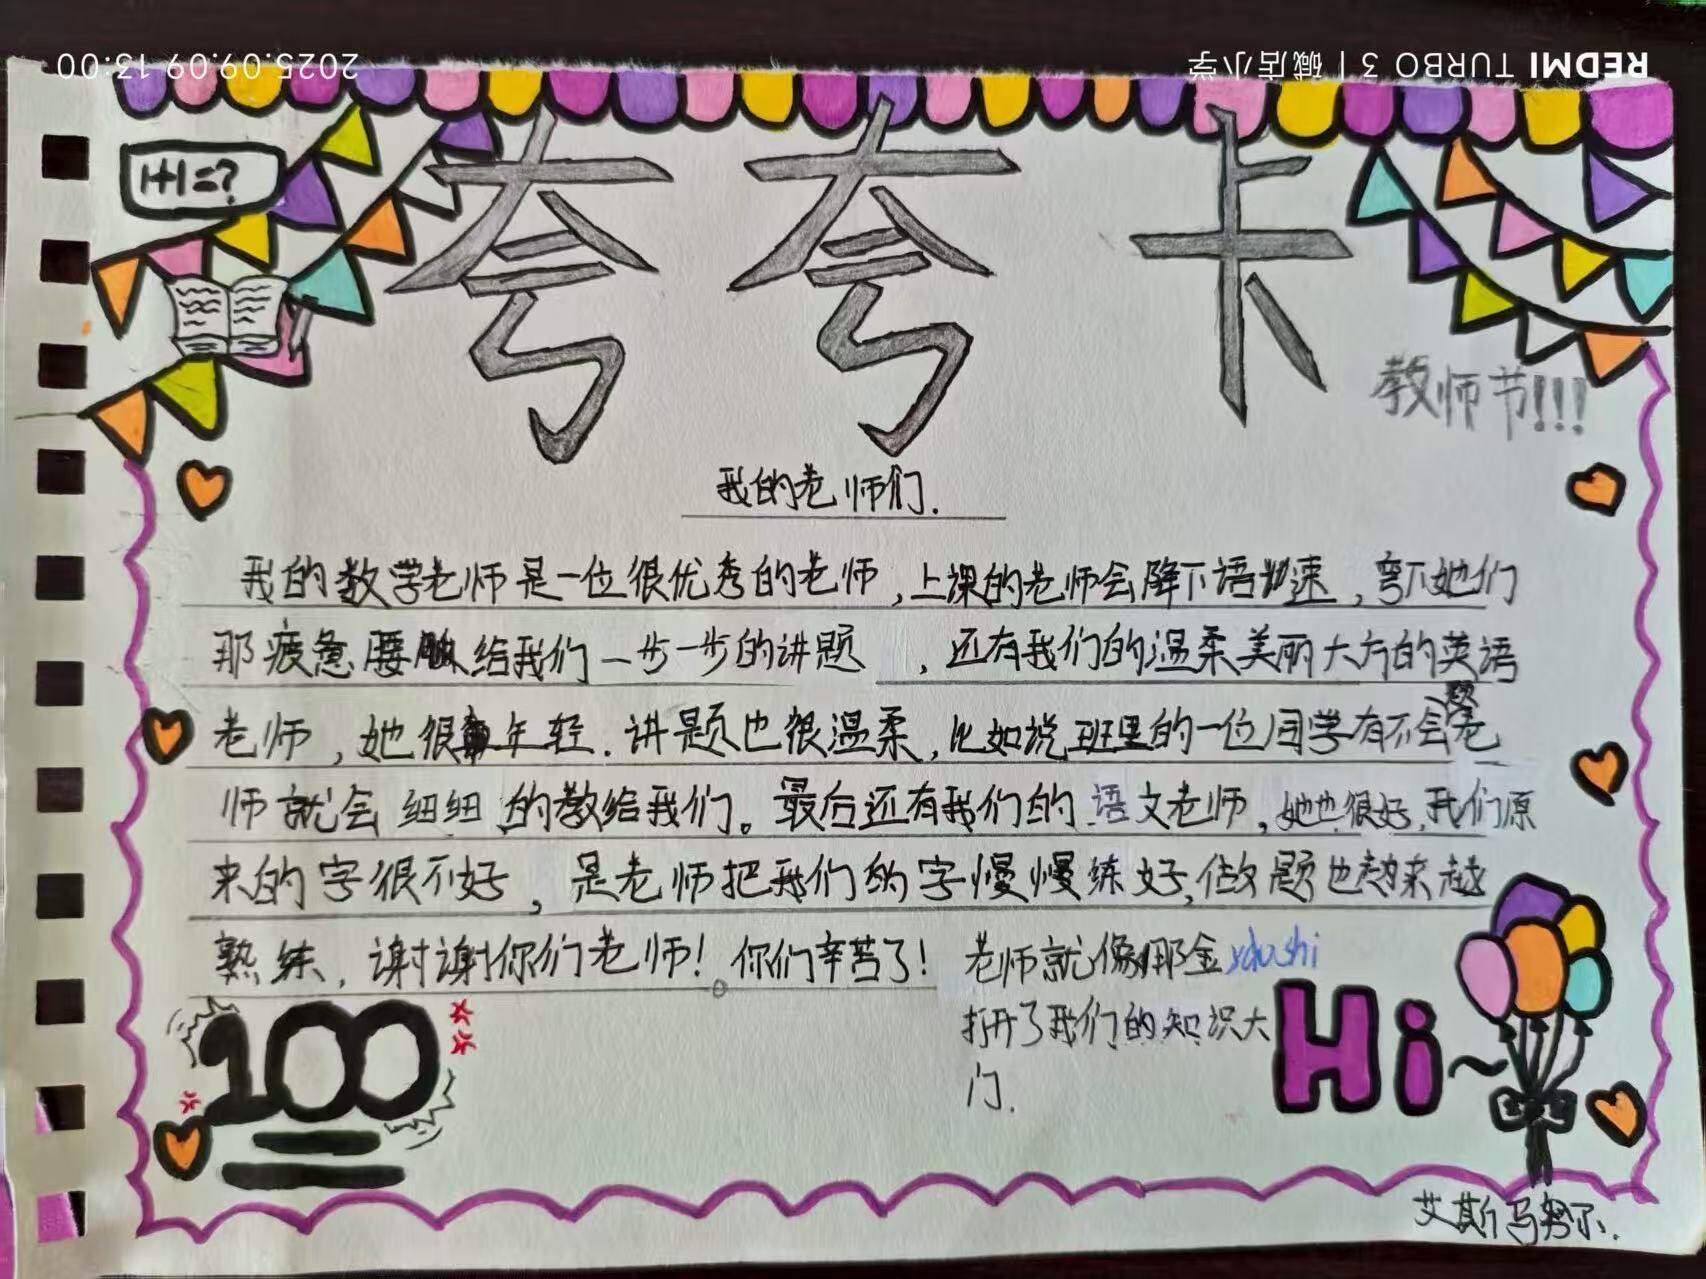 REDMI TURBO 3 | 碱店小学
2025.09.09 13:00
1+1=?
夸夸卡
教师节!!!
我的老师们.
我的数学老师是一位很优秀的老师,上课的老师会降下语速,弯下她们
那疲惫腰给我们一步一步的讲题,还有我们的温柔美丽大方的英语
老师,她很年轻.讲题也很温柔,比如说班里的一位同学有不会老
师就会细细的教给我们。最后还有我们的语文老师,她也很好,我们原
来的字很不好,是老师把我们的字慢慢练好,做题也越来越
熟练,谢谢你们老师!你们辛苦了!老师就像那金yàoshi
打开了我们的知识大
门.
100
Hi~
艾斯马努尔.